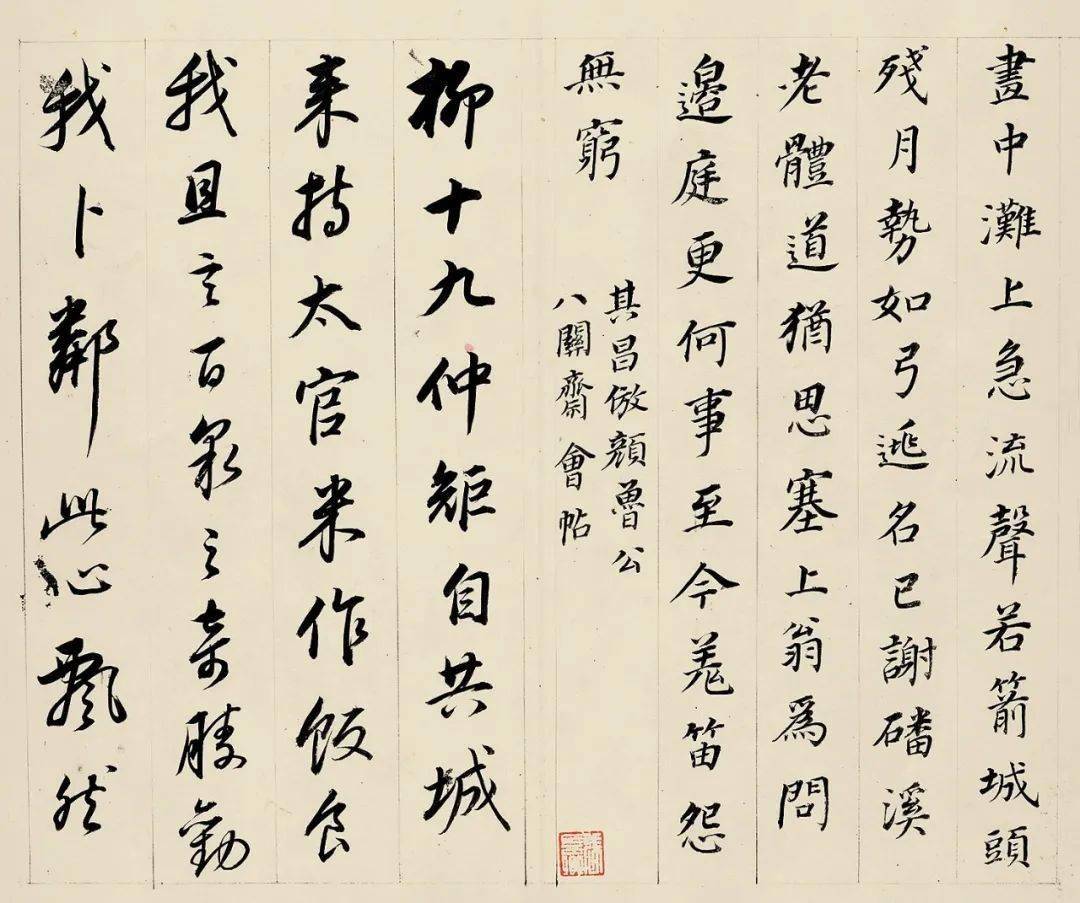 畫中灘上急流聲若箭城頭
殘月勢如弓逃名已謝磻溪
老體道猶思塞上翁為問
邊庭更何事至今羌笛怨
無窮
其昌倣顏魯公
八關齋會帖
柳十九仲矩自共城
来持太官米作飯食
我且言百泉之奇勝勸
我卜鄰此心飄然